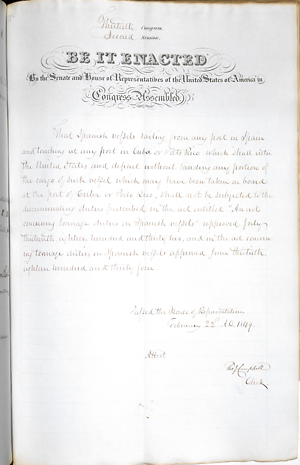 Thirtieth Congress,
Second Session,
BE IT ENACTED
By the Senate and House of Representatives of the United States of America in
Congress Assembled,
That Spanish vessels sailing from any port in Spain
and touching at any port in Cuba or Porto Rico which shall
the United States and depart without landing any portion of
the cargo of such vessel which may have been taken on board
at the port of Cuba or Porto Rico, shall not be subjected to the
discriminating duties in the act entitled "An act
concerning tonnage duties on Spanish vessels" approved July
thirteenth eighteen hundred and thirty two, and in the act concern
ing tonnage duties on Spanish vessels approved June thirtieth
eighteen hundred and thirty four
Passed the House of Representatives
February 22d A.D. 1849.
Attest
Campbell
Clerk